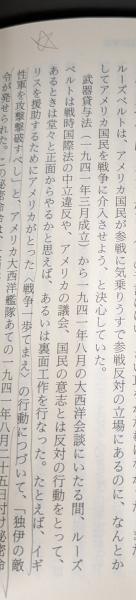 ルーズベルトは、アメリカ国民が参戦に気乗りうすで参戦反対の立場にあるのに、なんとか
してアメリカ国民を戦争に介入させよう、と決心していた。
武器貸与法（一九四一年三月成立）から一九四一年八月の大西洋会談にいたる間、ルーズ
ベルトは戦時国際法の中立違反や、アメリカの議会、国民の意志とは反対の行動をとって、
あるときは堂々と正面からやるかと思えば、あるいは裏面工作を行なった。たとえば、イギ
リスを援助するためにアメリカがとった〈戦争一歩てまえ〉の行動につづいて、「独伊の敵
性軍を攻撃撃破すべし」と、アメリカ大西洋艦隊あての一九四一年八月二十五日付け秘密命
令が発せられた。この秘密命令は